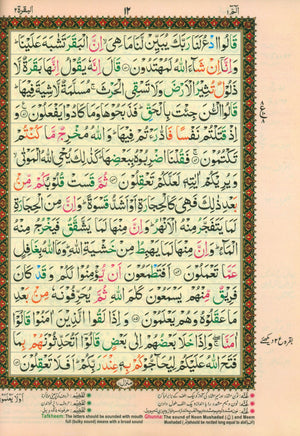 الٓمّٓ ١
١٢
البقرة ٢
قَالُوا ادْعُ لَنَا رَبَّكَ يُبَيِّنْ لَّنَا مَا هِيَ ۙ اِنَّ الْبَقَرَ تَشٰبَهَ عَلَيْنَا ؕ
وَاِنَّآ اِنْ شَآءَ اللّٰهُ لَمُهْتَدُوْنَ ۝ قَالَ اِنَّهٗ يَقُوْلُ اِنَّهَا بَقَرَةٌ لَّا
ذَلُوْلٌ تُثِيْرُ الْاَرْضَ وَلَا تَسْقِي الْحَرْثَ ۚ مُسَلَّمَةٌ لَّا شِيَةَ فِيْهَا ؕ
قَالُوا الْـٰٔنَ جِئْتَ بِالْحَقِّ ؕ فَذَبَحُوْهَا وَمَا كَادُوْا يَفْعَلُوْنَ ۝ وَ
اِذْ قَتَلْتُمْ نَفْسًا فَادّٰرَءْتُمْ فِيْهَا ؕ وَاللّٰهُ مُخْرِجٌ مَّا كُنْتُمْ
تَكْتُمُوْنَ ۝ فَقُلْنَا اضْرِبُوْهُ بِبَعْضِهَا ؕ كَذٰلِكَ يُحْيِ اللّٰهُ الْمَوْتٰى ۙ
وَيُرِيْكُمْ اٰيٰتِهٖ لَعَلَّكُمْ تَعْقِلُوْنَ ۝ ثُمَّ قَسَتْ قُلُوْبُكُمْ مِّنْ
بَعْدِ ذٰلِكَ فَهِيَ كَالْحِجَارَةِ اَوْ اَشَدُّ قَسْوَةً ؕ وَاِنَّ مِنَ الْحِجَارَةِ
لَمَا يَتَفَجَّرُ مِنْهُ الْاَنْهٰرُ ؕ وَاِنَّ مِنْهَا لَمَا يَشَّقَّقُ فَيَخْرُجُ مِنْهُ
الْمَآءُ ؕ وَاِنَّ مِنْهَا لَمَا يَهْبِطُ مِنْ خَشْيَةِ اللّٰهِ ؕ وَمَا اللّٰهُ بِغَافِلٍ
عَمَّا تَعْمَلُوْنَ ۝ اَفَتَطْمَعُوْنَ اَنْ يُّؤْمِنُوْا لَكُمْ وَقَدْ كَانَ
فَرِيْقٌ مِّنْهُمْ يَسْمَعُوْنَ كَلٰمَ اللّٰهِ ثُمَّ يُحَرِّفُوْنَهٗ مِنْۢ بَعْدِ
مَا عَقَلُوْهُ وَهُمْ يَعْلَمُوْنَ ۝ وَاِذَا لَقُوا الَّذِيْنَ اٰمَنُوْا قَالُوْٓا
اٰمَنَّا ۖۚ وَاِذَا خَلَا بَعْضُهُمْ اِلٰى بَعْضٍ قَالُوْٓا اَتُحَدِّثُوْنَهُمْ بِمَا
فَتَحَ اللّٰهُ عَلَيْكُمْ لِيُحَآجُّوْكُمْ بِهٖ عِنْدَ رَبِّكُمْ ؕ اَفَلَا تَعْقِلُوْنَ ۝
منزل
اَوَلَا يَعْلَمُوْنَ
Ghunna: The sound of Noon Mushadad
Tafkheem: The letters should be sounded with mouth full (bulky sound) means with a broad sound